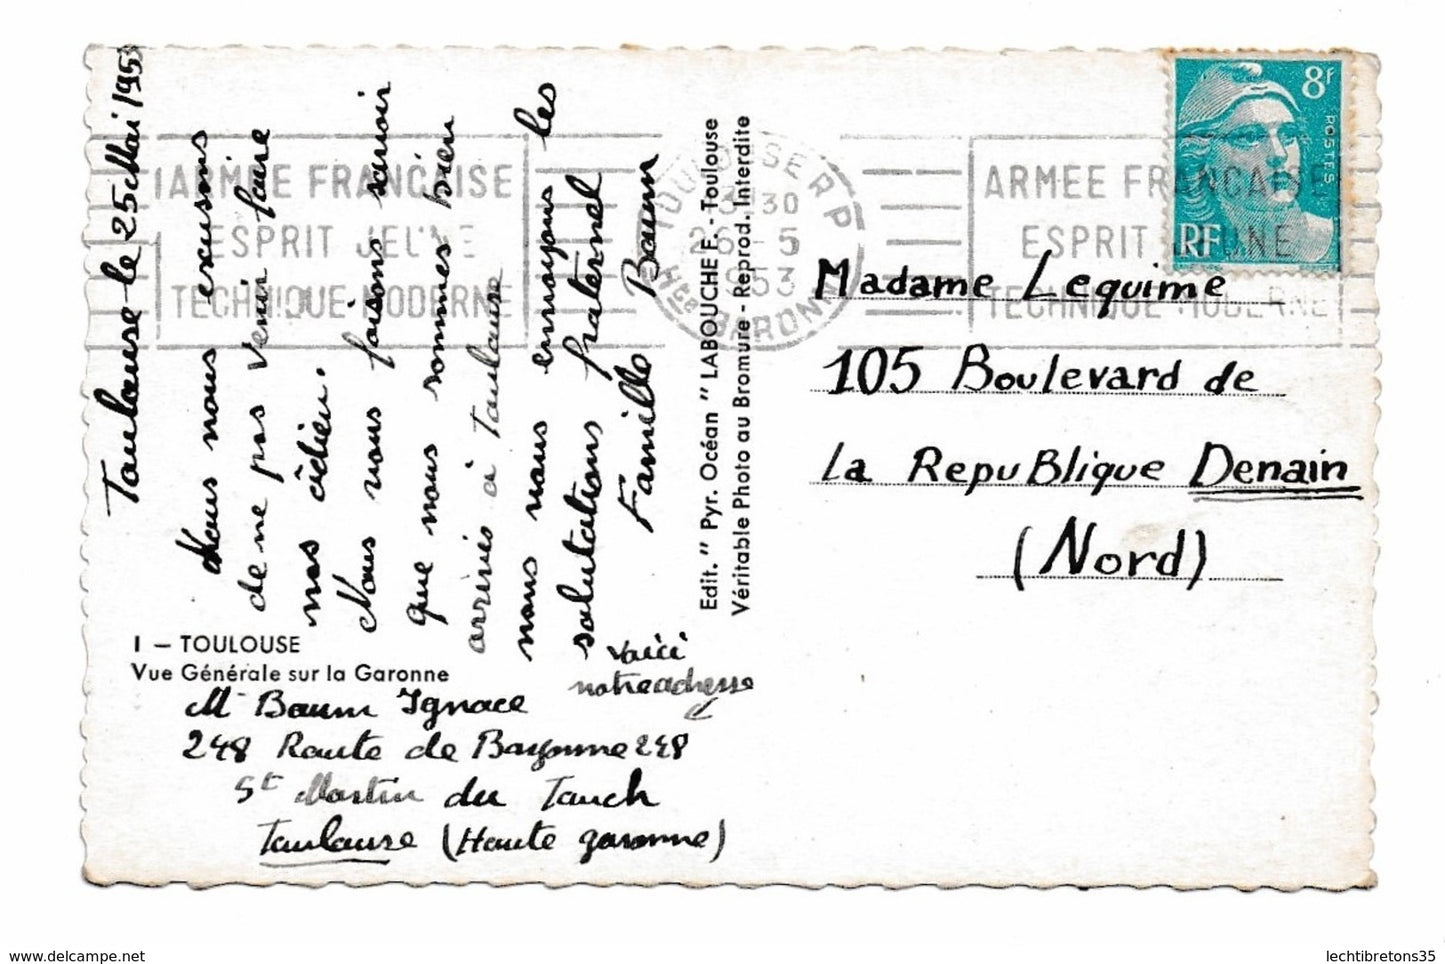 Toulouse le 25 Mai 1953
Nous nous excusons
de ne pas venir faire
nos âdieu.
Nous vous faisons savoir
que nous sommes bien
arrivés à Toulouse
nous vous envoyons les
salutations fraternel
Famille Baum
1 — TOULOUSE
Vue Générale sur la Garonne
voici
notre adresse
Mr Baum Ignace
248 Route de Bayonne 248
St Martin du Touch
Toulouse (Haute garonne)
Edit. " Pyr. Océan " LABOUCHE F. - Toulouse
Véritable Photo au Bromure - Reprod. Interdite
ARMÉE FRANÇAISE
ESPRIT JEUNE
TECHNIQUE MODERNE
TOULOUSE R P
26 - 5
1953
Hte GARONNE
ARMEE FRANCAISE
ESPRIT JEUNE
TECHNIQUE MODERNE
8F
POSTES
RF
Madame Lequime
105 Boulevard de
la RepuBlique Denain
(Nord)
www.delcampe.net
lechtibretons35